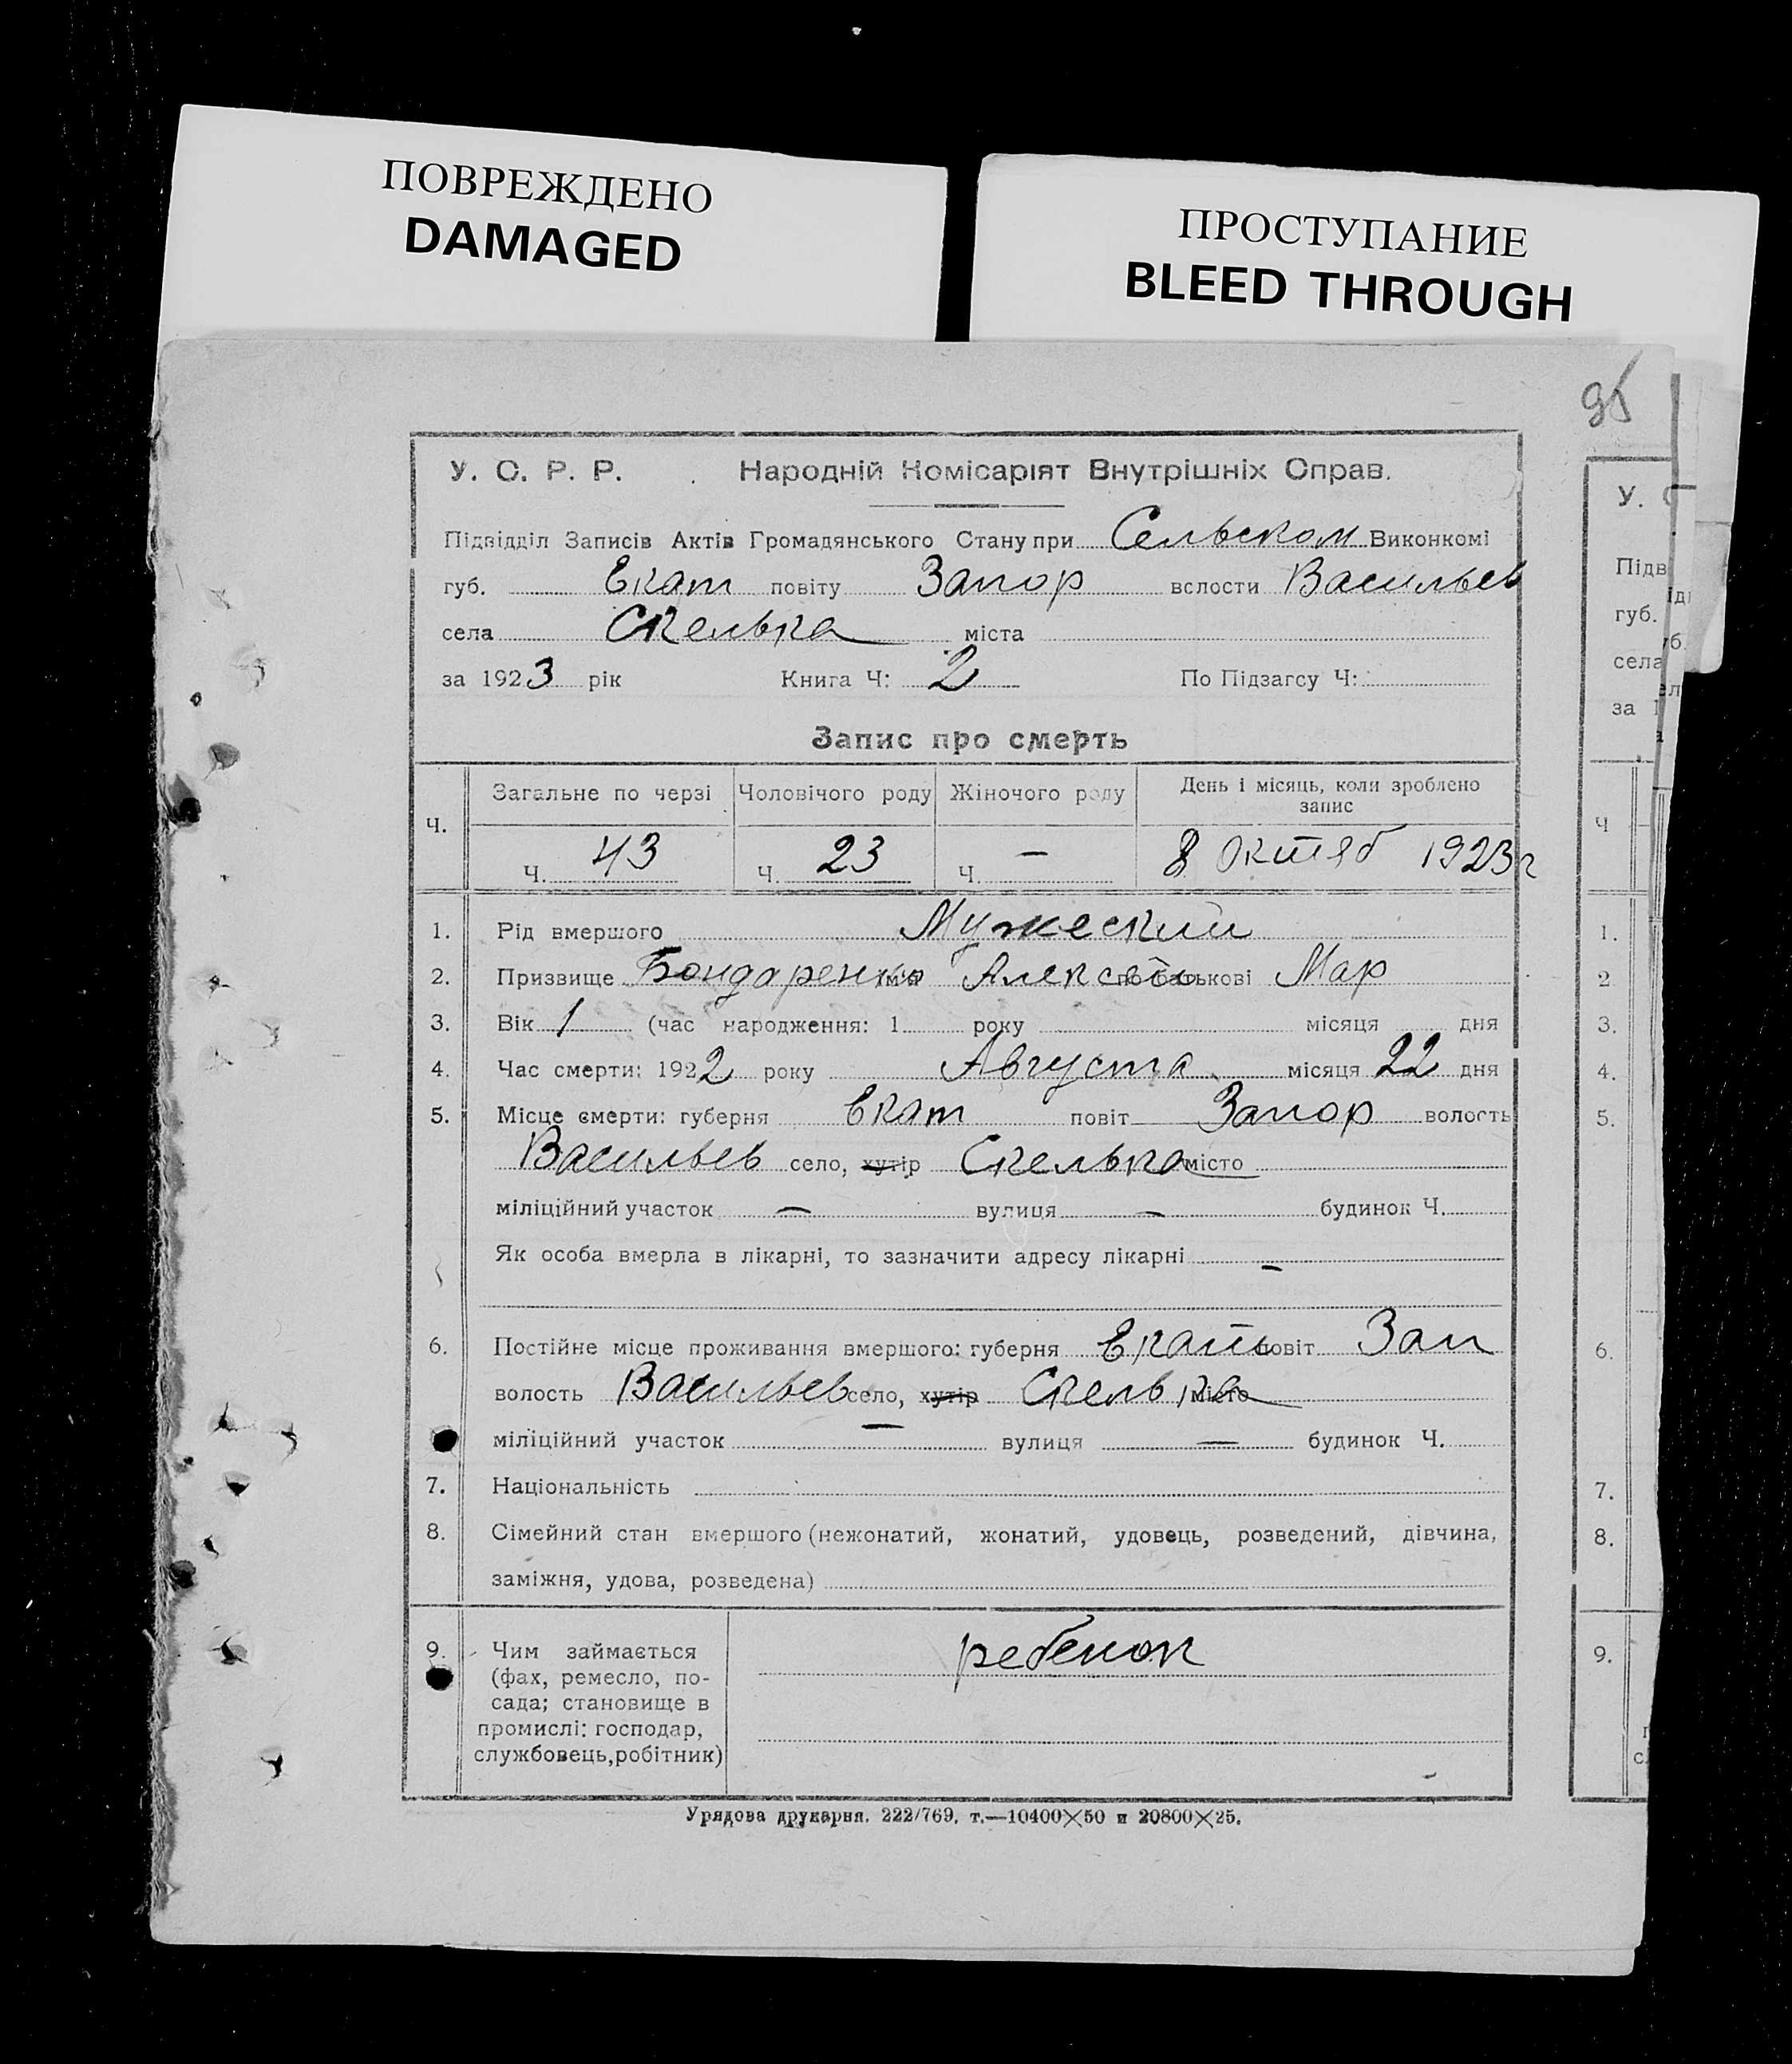 ПОВРЕЖДЕНО
DAMAGED
ПРОСТУПАНИЕ
BLEED THROUGH
У. С. Р. Р. Народній Комісаріят Внутрішніх Справ.
Підвідділ Записів Актів Громадянського Стану при Сельском Виконкомі
губ. Екат повіту Запор вслости Васильев
села Скелька міста
за 1923 рік Книга Ч: 2 По Підзагсу Ч:
Запис про смерть
Ч. Загальне по черзі Чоловічого роду Жіночого роду День і місяць, коли зроблено
запис
Ч. 43 Ч. 23 Ч. — 8 Октяб 1923 г
1. Рід вмершого Мужеский
2. Призвище Бондаренко імя Алексей по батькові Мар
3. Вік 1 (час народження: 1 року місяця дня
4. Час смерти: 1922 року Августа місяця 22 дня
5. Місце смерти: губерня Екат повіт Запор волость
Васильев село, хутір Скелька місто
міліційний участок — вулиця — будинок Ч.
Як особа вмерла в лікарні, то зазначити адресу лікарні —
6. Постійне місце проживання вмершого: губерня Екат повіт Зап
волость Васильев село, хутір Скелька місто
міліційний участок — вулиця — будинок Ч.
7. Національність
8. Сімейний стан вмершого (нежонатий, жонатий, удовець, розведений, дівчина,
заміжня, удова, розведена)
9. Чим займається ребенок
(фах, ремесло, по-
сада; становище в
промислі: господар,
службовець, робітник)
Урядова друкарня. 222/769. т.—10400×50 и 20800×25.
У. С
Підв
губ.
села
за 1
Ч
1.
2
3.
4.
5.
6.
7.
8.
9.